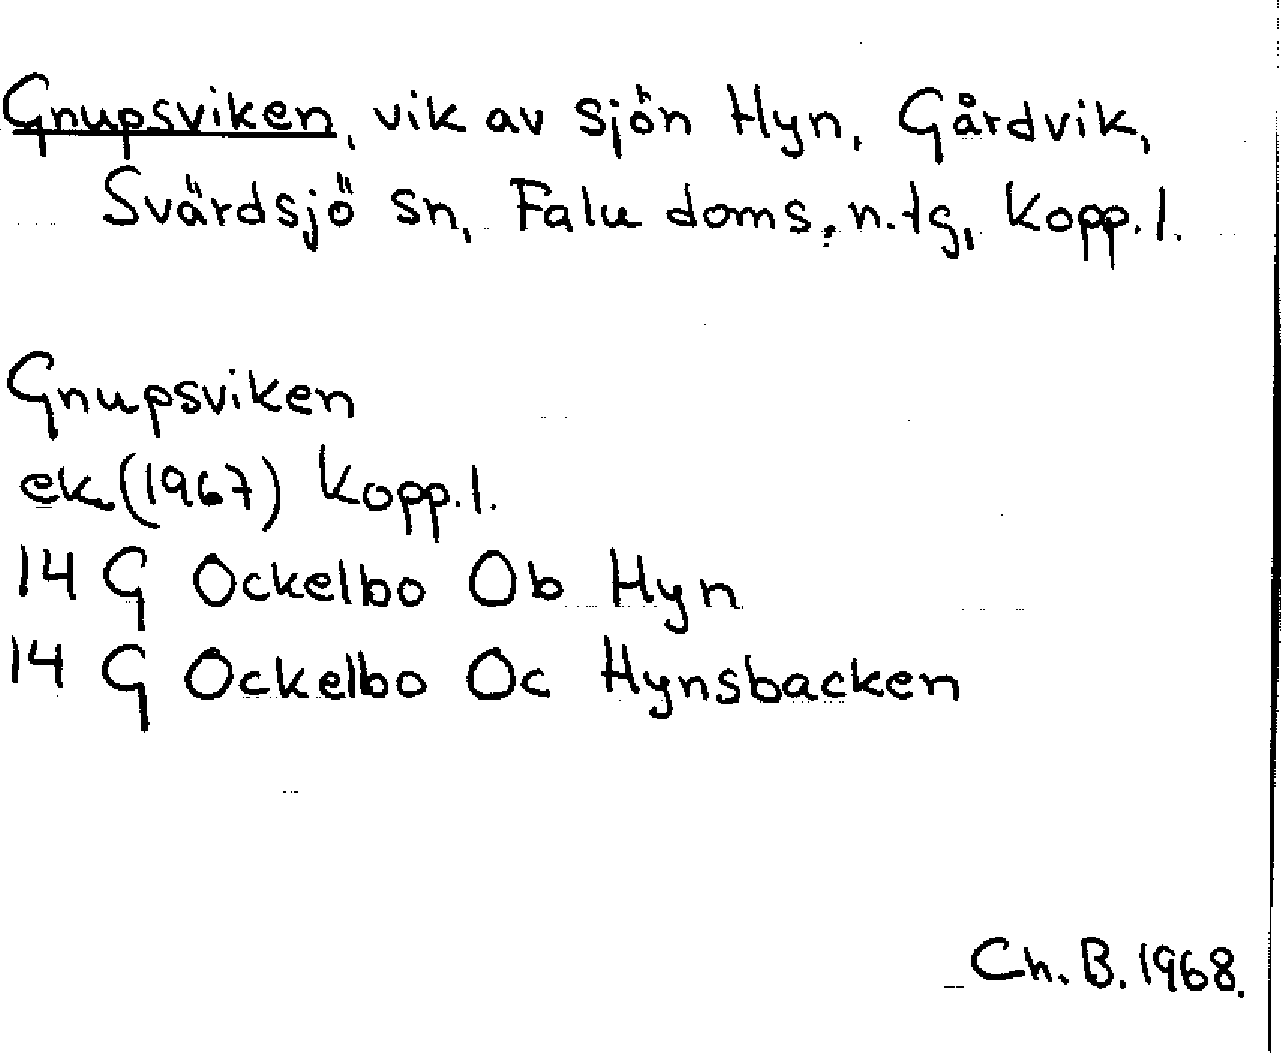 Gnupsviken, vik av sjön Hyn, Gårdvik,
Svärdsjö sn, Falu doms. n. tg, Kopp. l.
Gnupsviken
ek (1967) Kopp. l.
14 G Ockelbo Ob Hyn
14 G Ockelbo Oc Hynsbacken
Ch. B. 1968.